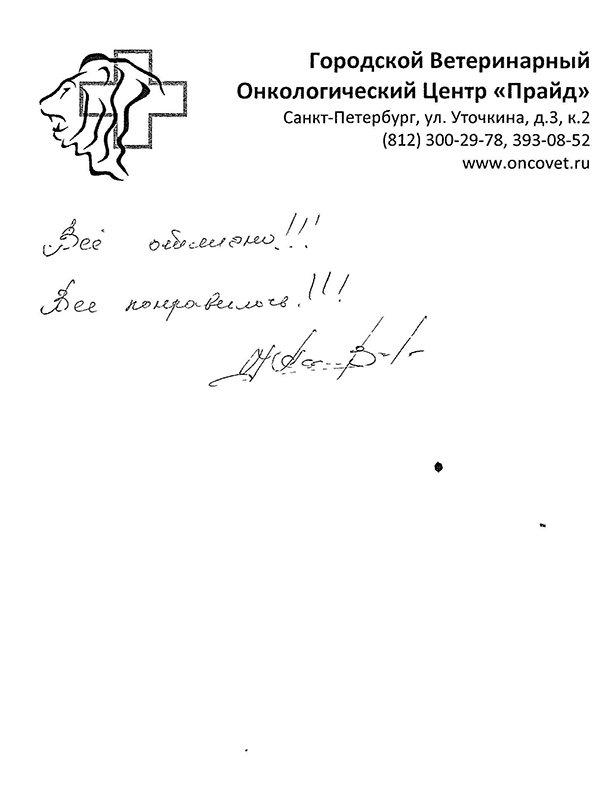 Городской Ветеринарный
Онкологический Центр «Прайд»
Санкт-Петербург, ул. Уточкина, д.3, к.2
(812) 300-29-78, 393-08-52
www.oncovet.ru
Всё отлично!!!
Все понравилось!!!